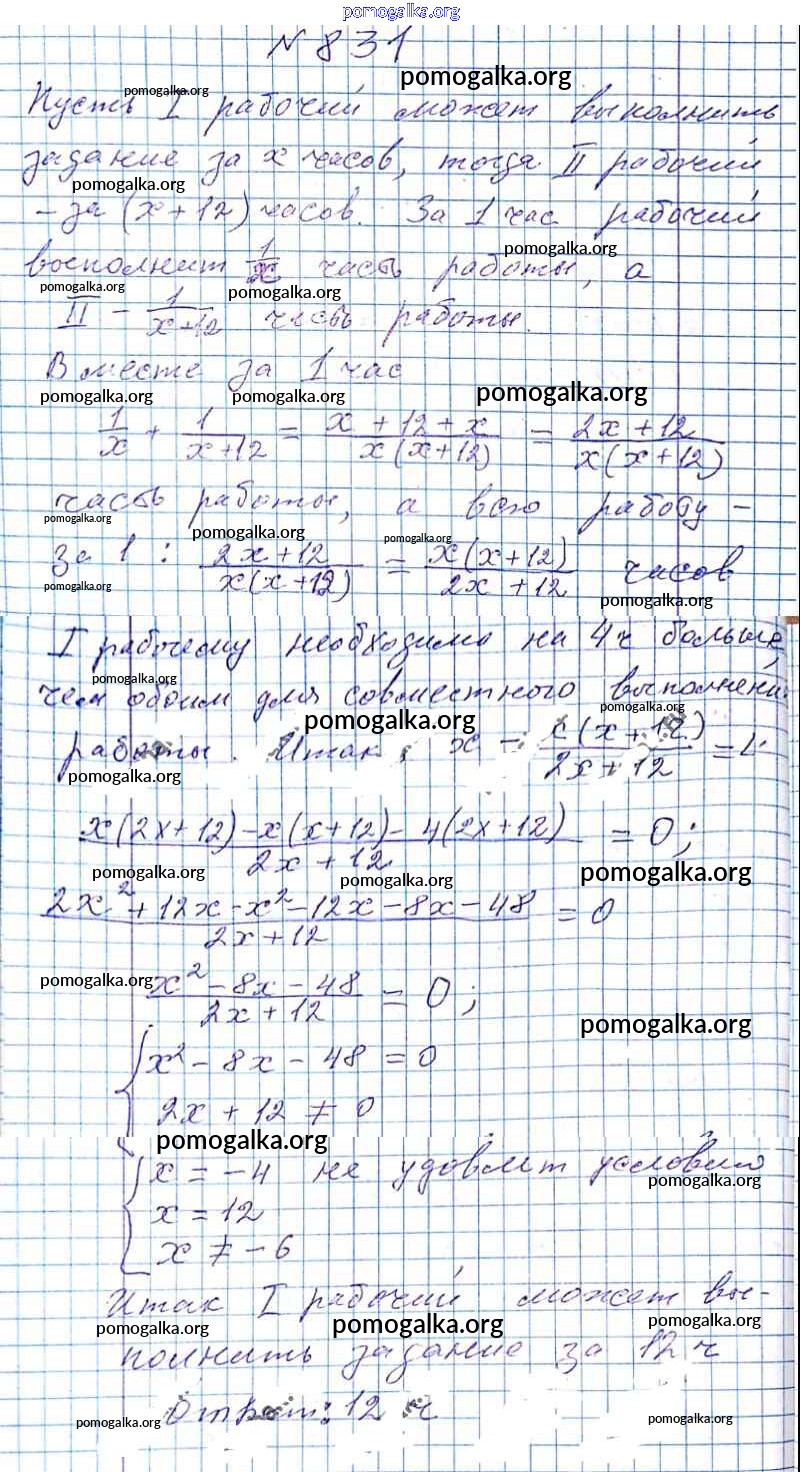 pomogalka.org
N 831
pomogalka.org
pomogalka.org
Пусть I рабочий может выполнить
задание за x часов, тогда II рабочий
pomogalka.org
- за (x+12) часов. За 1 час рабочий
pomogalka.org
восполнит 1/x часть работы, а
pomogalka.org pomogalka.org
II - 1/(x+12) часть работы.
Вместе за 1 час
pomogalka.org pomogalka.org pomogalka.org
1/x + 1/(x+12) = (x+12+x)/(x(x+12)) = (2x+12)/(x(x+12))
часть работы, а всю работу -
pomogalka.org pomogalka.org pomogalka.org
за 1 : (2x+12)/(x(x+12)) = x(x+12)/(2x+12) часов
pomogalka.org pomogalka.org
I рабочему необходимо на 4ч больше,
pomogalka.org
чем обоим для совместного выполнени
pomogalka.org pomogalka.org
работы. Итак, x - x(x+12)/(2x+12) = 4
pomogalka.org
(x(2x+12)-x(x+12)-4(2x+12))/(2x+12) = 0;
pomogalka.org pomogalka.org pomogalka.org
(2x²+12x-x²-12x-8x-48)/(2x+12) = 0
pomogalka.org
(x²-8x-48)/(2x+12) = 0;
pomogalka.org
{x²-8x-48 = 0
2x+12 ≠ 0
pomogalka.org
{x = -4 не удовлет условию
pomogalka.org
x = 12
x ≠ -6
Итак I рабочий может вы-
pomogalka.org pomogalka.org pomogalka.org
полнить задание за 12 ч
Ответ: 12 ч
pomogalka.org pomogalka.org pomogalka.org